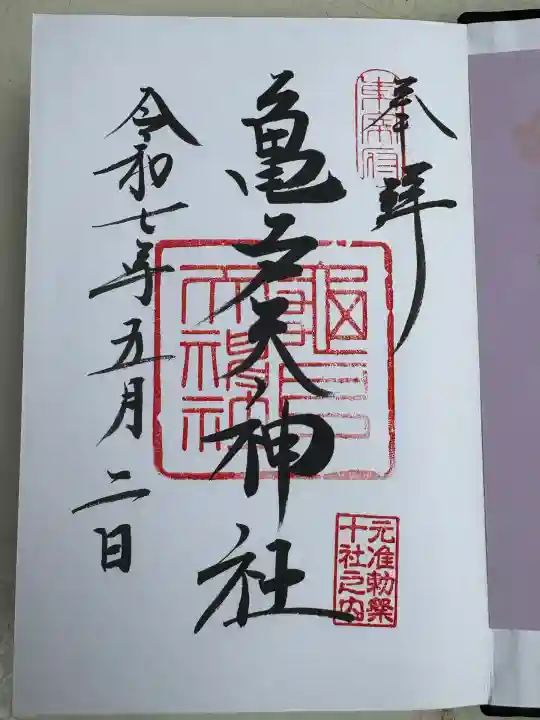 奉拝
東宰府
亀戸天神社
元准勅祭
十社之内
令和七年五月二日